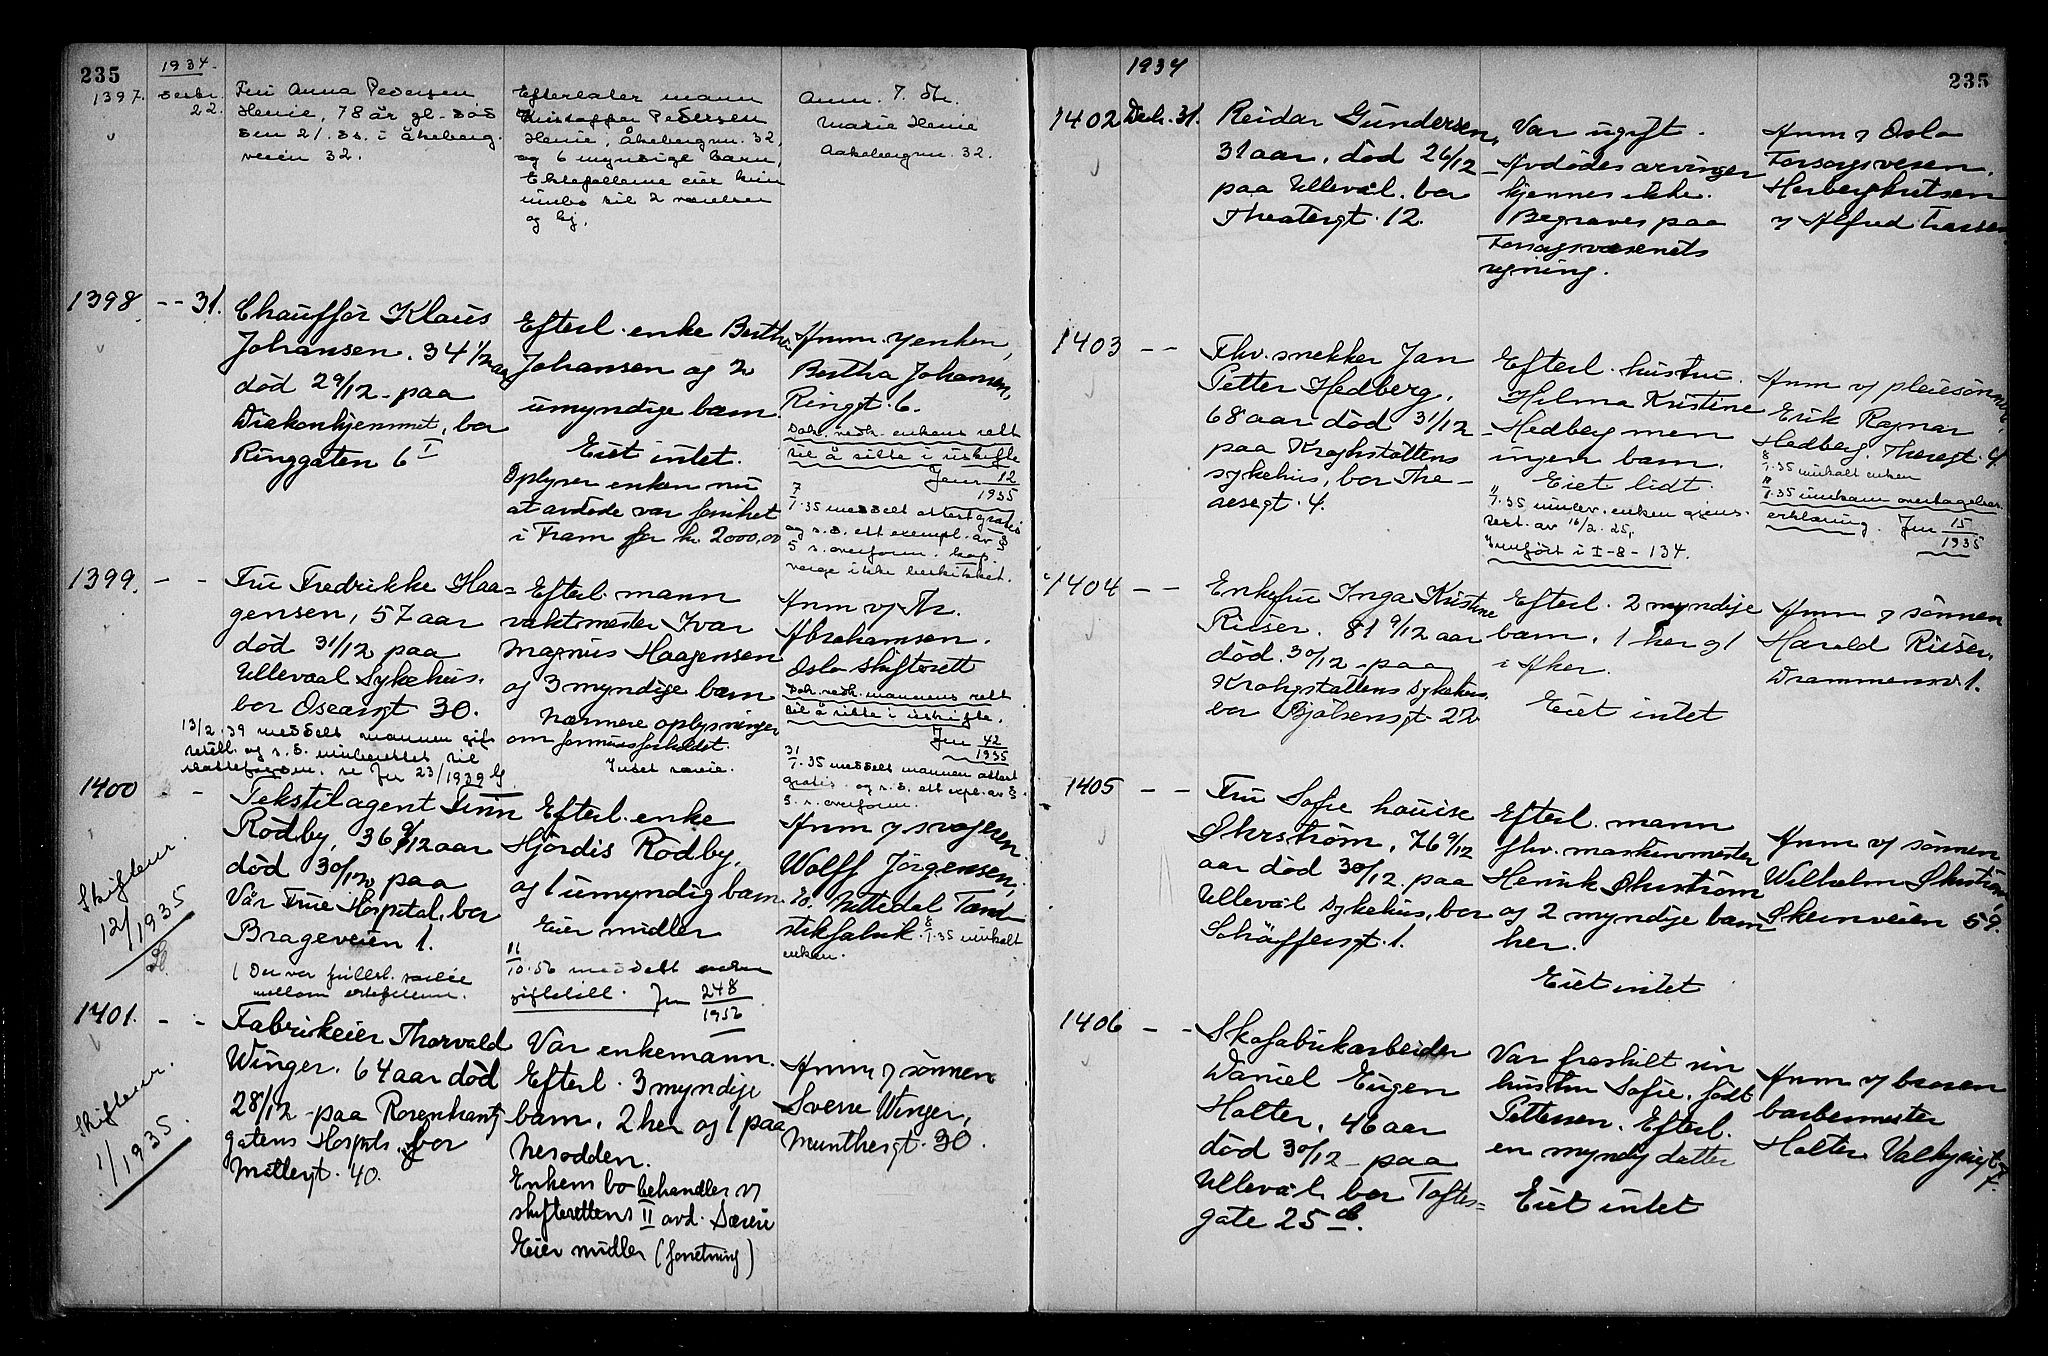 235
1934.
1397.
Desbr.
22.
Fru Anna Pedersen
Henie, 78 år gl. død
den 21. ds. i Åkeberg
veien 32.
Efterlater mann
Kristoffer Pedersen
Henie, Åkebergvn. 32,
og 6 myndige barn,
Ektefellene eier kun
innbo til 2 værelser
og kj.
Anm. 7.
Marie Henie
Aakebergvn. 32.
1398 - - 31.
Chauffør Klaus
Johansen. 34 1/2 aar
død 29/12 - paa
Diakonhjemmet, bor
Ringgaten 6 I
Efterl. enke Bertha
Johansen og 2
umyndige barn.
Eiet intet.
Oplyser enken nu
at avdøde var forsikret
i Fram for kr. 2000,00
Anm. v/ enken,
Bertha Johansen,
Ringgt. 6.
Dok. vedk. enkens rett
til å sitte i uskifte
Jnr 12
1935
7
1.35 meddelt attest gratis
og s.d. ett exempl. av §
5 s. overform. kap.
verge ikke beskikket.
1399. - -
Fru Fredrikke Haa-
gensen, 57 aar
død 31/12 paa
Ullevaal Sykehus.
bor Oscarsgt 30.
13/2.39 meddelt mannen gif
tetill. og s.d. innberettet til
skattefogden. se Jnr 23/1939
Efterl. mann
vaktmester Ivar
Magnus Haagensen
og 3 myndige barn
Nærmere oplysninger
om formuesforholdet.
Intet særeie.
Anm v/ Hr.
Abrahamsen.
Oslo skifterett
Dok. vedk. mannens rett
til å sitte i uskifte.
Jnr 42
1935
31
1.35 meddelt mannen attest
gratis og s.d. ett expl. av §
5. s. overform.
1400 - -
Skiftenr.
12/1935
Tekstilagent Finn
Rødby, 36 9/12 aar
død 30/12 paa
Vår Frue Hospital, bor
Brageveien 1.
( Der var fullst. særeie
mellom ektefellene.
Efterl. enke
Hjördis Rødby,
og 1 umyndig barn.
Eier midler
11
10.56 meddelt enken
giftetill. Jnr 248
1956
Anm v/ svogeren
Wolff Jörgensen,
Nittedal Tænd
stikfabrik. 8
1.35 innkalt
enken.
1401. - -
Skiftenr.
1/1935.
Fabrikeier Thorvald
Winger. 64 aar død
28/12 - paa Rosenkrantz
gatens Hospits. bor
Møllergt. 40.
Var enkemann.
Efterl. 3 myndige
barn, 2 her og 1 paa
Nesodden.
Enkens bo behandles v/
skifterettens II avd. Særeie
Eier midler (forretning)
Anm v/ sönnen
Sverre Winger,
Munthesgt. 30.
1934
235
1402 Decb. 31.
Reidar Gundersen,
31 aar. död 26/12 -
paa Ullevål. bor
Theatergt. 12.
Var ugift.
Avdödes arvinger
kjennes ikke.
Begraves paa
Forsorgsvæsenets
regning.
Anm v/ Oslo
Forsorgsvesen.
v/ Alfred Larsen
1403 - -
Fhv. snekker Jan
Petter Hedberg.
68 aar död 31/12 -
paa Kroghstöttens
sykehus, bor The-
resesgt. 4.
Efterl. hustru.
Hilma Kristine
Hedberg men
ingen barn.
Eiet lidt.
11
1.35 innlev. enken gjens.
test. av 16/2.25,
Innført i I-8-134.
Anm v/ pleiesönnen,
Erik Ragnar
Hedberg. Theresgt. 4.
8
1.35 innkalt enken
11
1.35 innkom overtagelses
erklæring. Jnr 15
1935
1404 - -
Enkefru Inga Kristine
Riiser. 81 9/12 aar
död 30/12 - paa
Krohgstøttens Sykehus
bor Bjölsensgt. 22
Efterl. 2 myndige
barn. 1 her og 1
i Aker.
Eiet intet
Anm v/ sönnen
Harald Riiser,
Drammensv. 1.
1405 - -
Fru Sofie Louise
Øhrström, 76 9/12
aar död 30/12. paa
Ullevål Sykehus, bor
Schäffersgt. 1.
Efterl. mann
fhv. maskinmester
Henrik Øhrström
og 2 myndige barn
her.
Eiet intet
Anm v/ sönnen
Wilhelm Øhrström,
Skeinveien 59.
1406 - -
Skofabrikarbeider
Daniel Eugen
Holter, 46 aar
död 30/12 - paa
Ullevål bor Toftes-
gate 25 d.
Var fraskilt sin
hustru Sofie, født
Pettersen. Efterl.
en myndig datter
Eiet intet
Anm v/ broren
barbermester
Holter Valkyriegt.